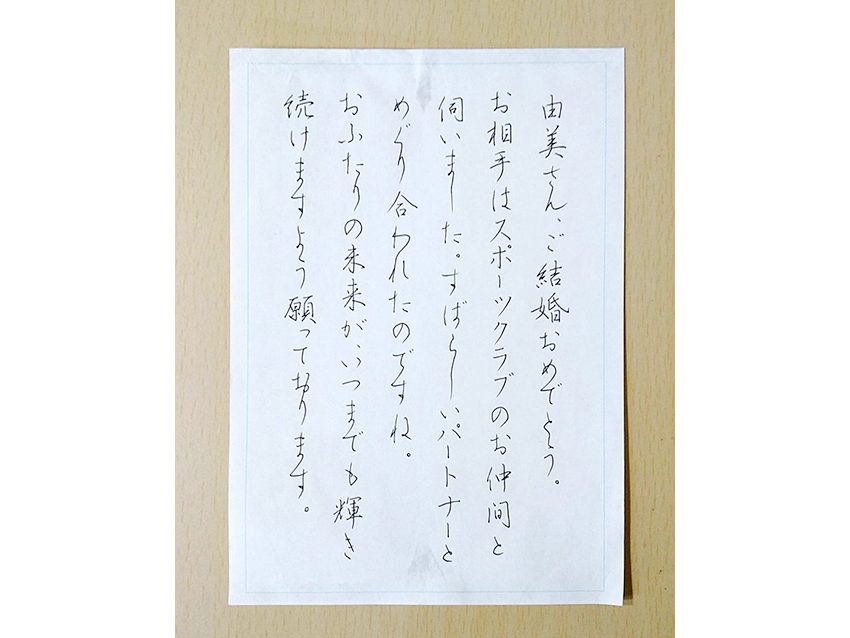 由美さん、ご結婚おめでとう。
お相手はスポーツクラブのお仲間と
伺いました。すばらしいパートナーと
めぐり合われたのですね。
おふたりの未来が、いつまでも輝き
続けますよう願っております。